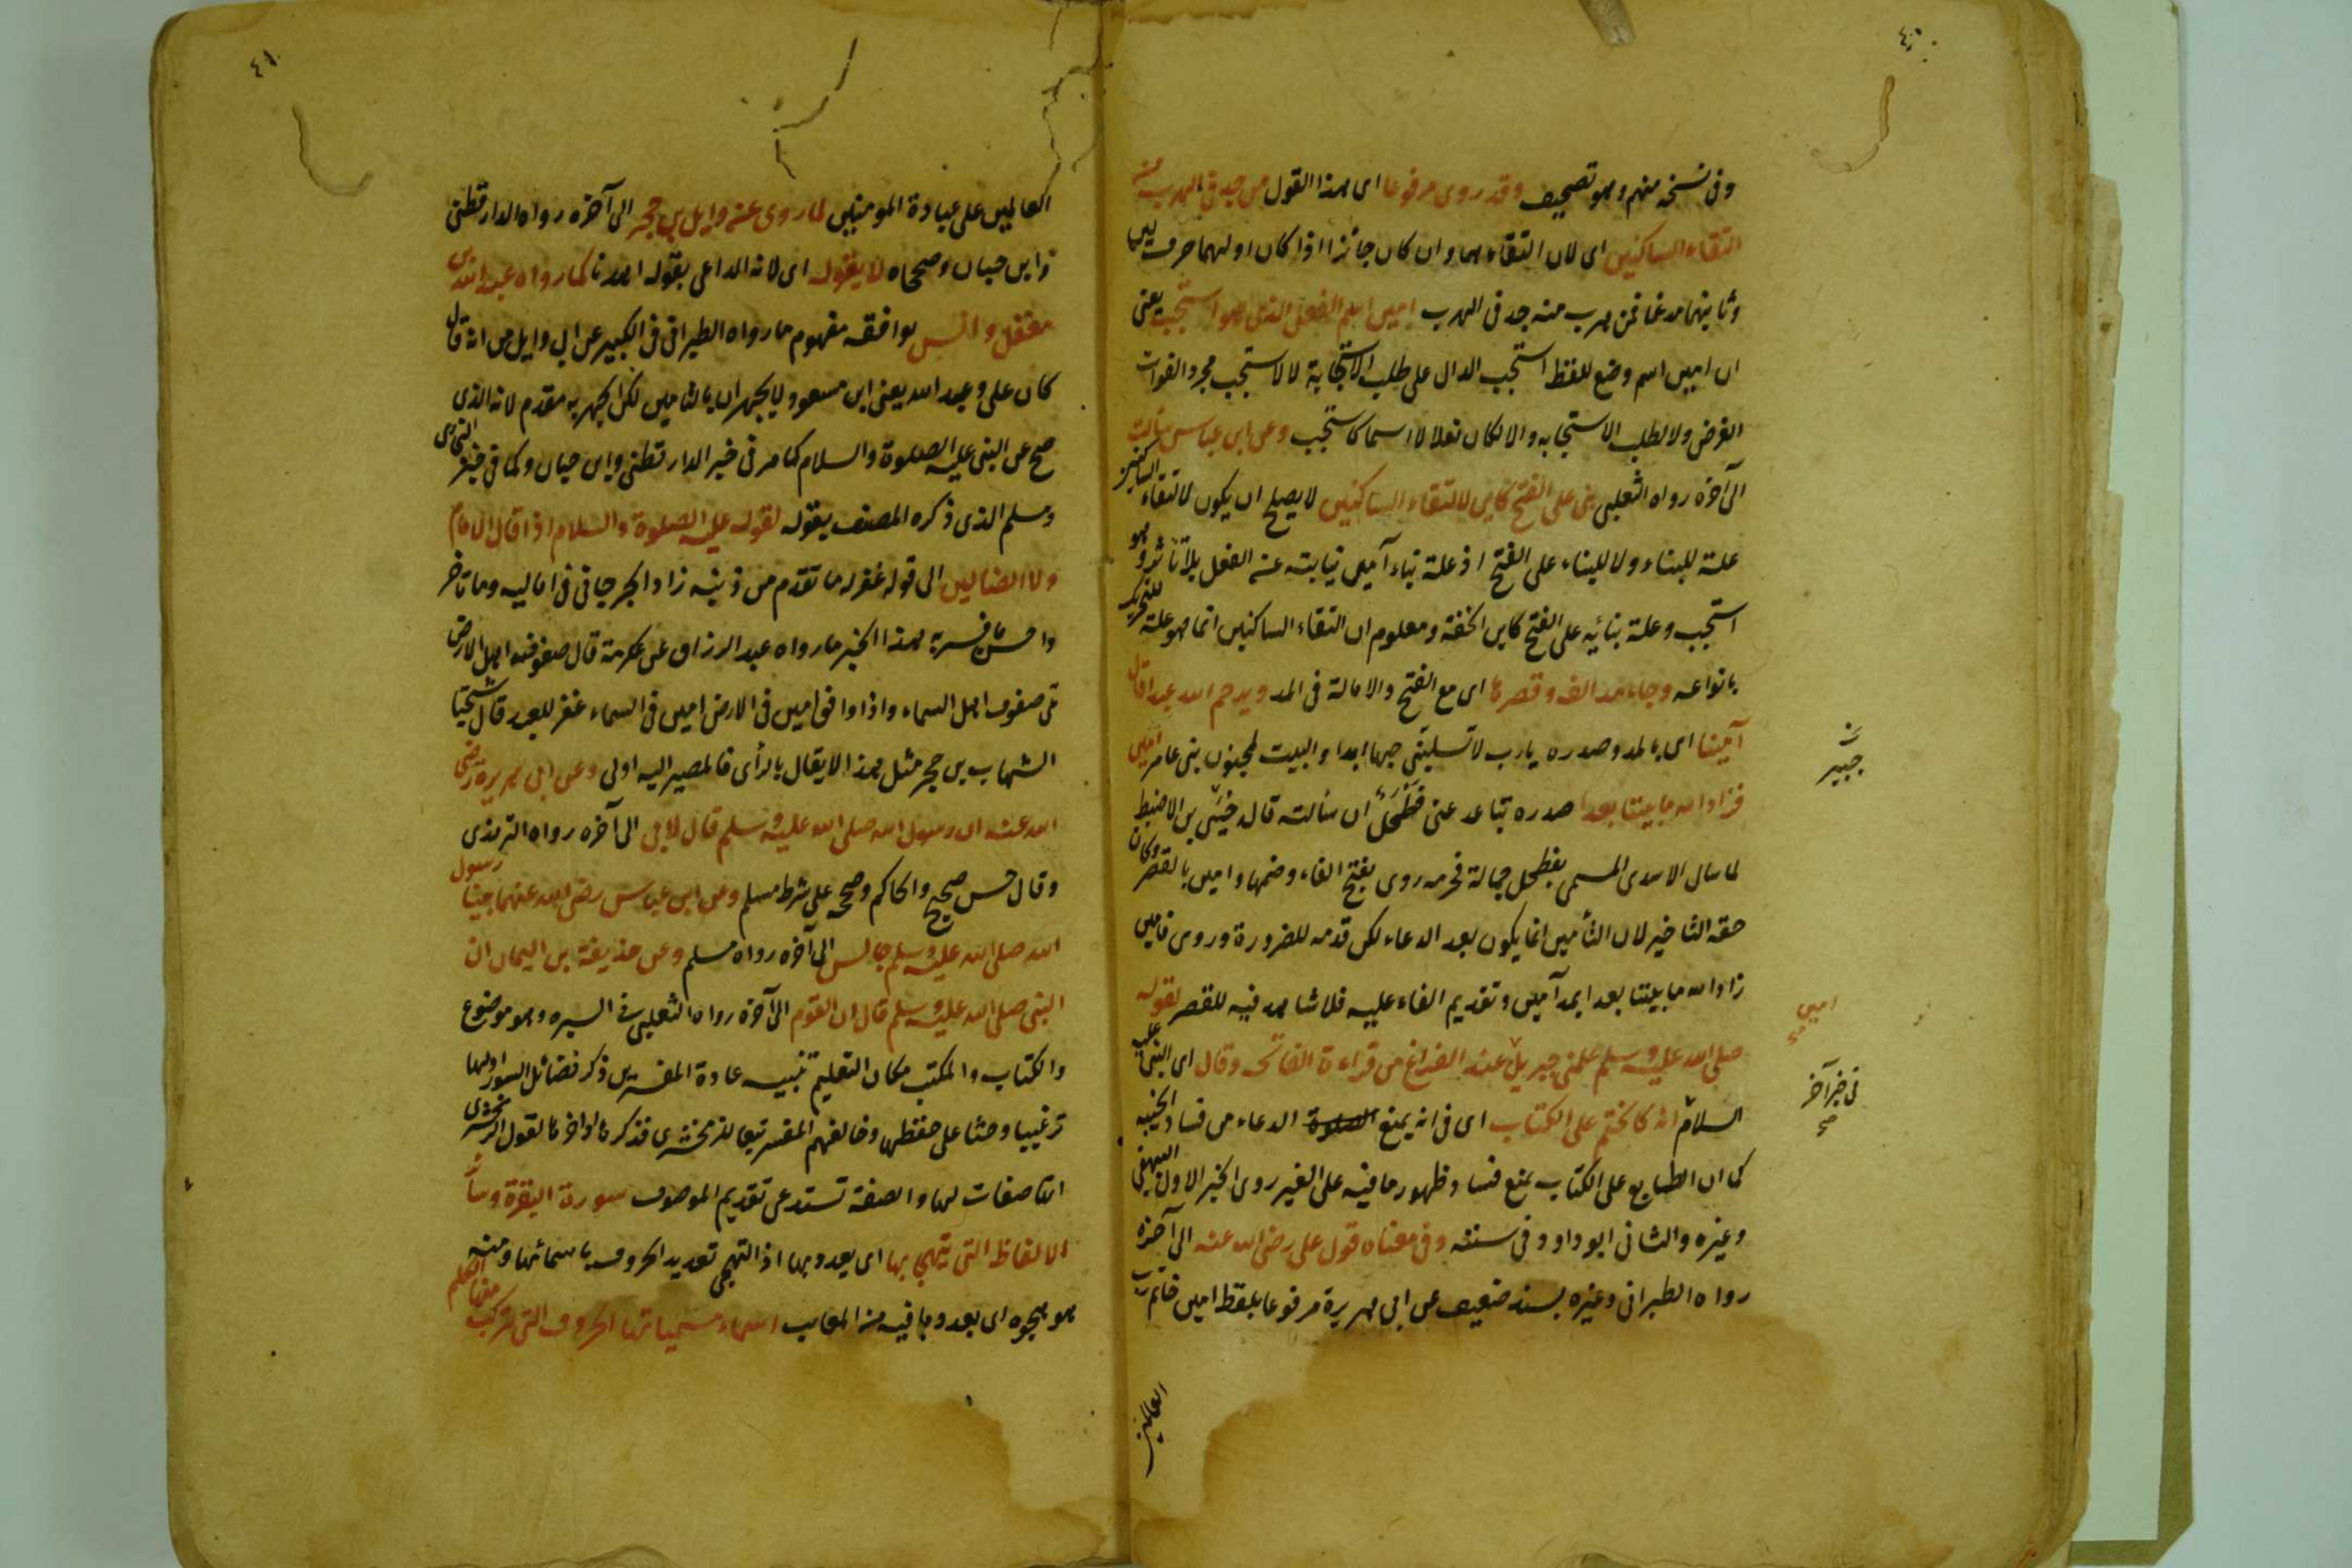 ٤٠
وفى نسخه منهم وهو تصحيف وقد روى مرفوعا اى هذا القول من جد فى الهرب منه
التقاء الساكنين اى لان التقاءهما وان كان جائزا اذا كان اولهما حرف لين
وثانيهما مدغما فمن هرب منه جد فى الهرب امين اسم الفعل الذى هو استجب يعنى
ان امين اسم وضع للفظ استجب الدال على طلب الاستجابة لا لاستجب مجرد
الغرض ولا لطلب الاستجابه والا لكان فعلا لا اسما كاستجب وعن ابن عباس سألت
الى آخره رواه الثعلبى بنى على الفتح كاين لالتقاء الساكنين لا يصلح ان يكون لالتقاء الساكنين
علة للبناء ولا للبناء على الفتح اذ علة بناء آمين نيابته عن الفعل بلا تاثر وهو
استجب وعلة بنائه على الفتح كاين الخفة ومعلوم ان التقاء الساكنين انما هو علة للتحريك
بانواعه وجاء مد الفه وقصرها اى مع الفتح والامالة فى المد ويرحم الله عبدا قال
آمينا اى بالمد وصدره يارب لا تسلبنى حبها ابدا والبيت لمجنون بنى عامر امين
فزاد الله ما بيننا بعدا صدره تباعد عنى فطحل ان سالته قال جبير بن الاضبط
لما سال الاسدى المسمى بفطحل حمالة فحرمه روى بفتح الفاء وضمها وامين بالقصر وكان
حقه التاخير لان التأمين انما يكون بعد الدعاء لكن قدمه للضرورة وروى فامين
زاد الله ما بيننا بعد ابمد آمين وتقديم الفاء عليه فلا شاهد فيه للقصر لقوله
صلى الله عليه وسلم علمنى جبريل عند الفراغ من قراءة الفاتحه وقال اى النبى عليه
السلام انه كالختم على الكتاب اى فى انه يمنع الدعاء من فساد الخيبه
كما ان الطابع على الكتاب يمنع فساد ظهور ما فيه على الغير روى الخبر الاول البيهقى
وغيره والثانى ابو داود فى سننه وفى معناه قول على رضى الله عنه الى آخره
رواه الطبرانى وغيره بسند ضعيف عن ابى هريرة مرفوعا بلفظ امين خاتم رب
العالمين
جبير
امين
صح
فى خبر آخر
صح
٤١
العالمين على عبادة المومنين لما روى عنه وايل بن حجر الى آخره رواه الدارقطنى
وابن حبان وصححاه لا يقوله اى لانه الداعى بقوله اهدنا كما رواه عبد الله بن
مغفل وانس يوافقه مفهوم ما رواه الطبرانى فى الكبير عن ابى وايل من انه قال
كان على وعبد الله يعنى ابن مسعود لا يجهران بالتامين لكن الجهر به مقدم لانه الذى
صح عن النبى عليه الصلوة والسلام كما مر فى خبر الدارقطنى وابن حبان وكما فى خبر البخارى
ومسلم الذى ذكره المصنف بقوله لقوله عليه الصلوة والسلام اذا قال الامام
ولا الضالين الى قوله غفر له ما تقدم من ذنبه زاد الجرجانى فى اماليه وما تاخر
واحسن ما فسر به هذا الخبر ما رواه عبد الرزاق عن عكرمة قال صفوف اهل الارض
على صفوف اهل السماء واذا وافق امين فى الارض امين فى السماء غفر للعبد قال شيخنا
الشهاب بن حجر مثل هذا لا يقال بالرأى فالمصير اليه اولى وعن ابى هريرة رضى
الله عنه ان رسول الله صلى الله عليه وسلم قال لابى الى آخره رواه الترمذى
وقال حسن صحيح والحاكم وصححه على شرط مسلم وعن ابن عباس رضى الله عنهما بينا رسول
الله صلى الله عليه وسلم جالس الى آخره رواه مسلم وعن حذيفة بن اليمان ان
النبى صلى الله عليه وسلم قال ان القوم الى آخره رواه الثعلبى فى السيره وهو موضوع
والكتاب والمكتب مكان التعليم تنبيه عادة المفسرين ذكر فضائل السور اولها
ترغيبا وحثا على حفظها وخالفهم المفسر تبعا للزمخشرى فذكرها اواخرها لقول الزمخشرى
انها صفات لها والصفة تستدعى تقديم الموصوف سورة البقرة وسائر
الالفاظ التى يتهجى بها اى يعدد بها اذ التهجى تعديد الحروف باسمائها ومنه
هو يهجوه اى يعدد ما فيه من المعايب اسماء مسمياتها الحروف التى تركبت منها الكلم